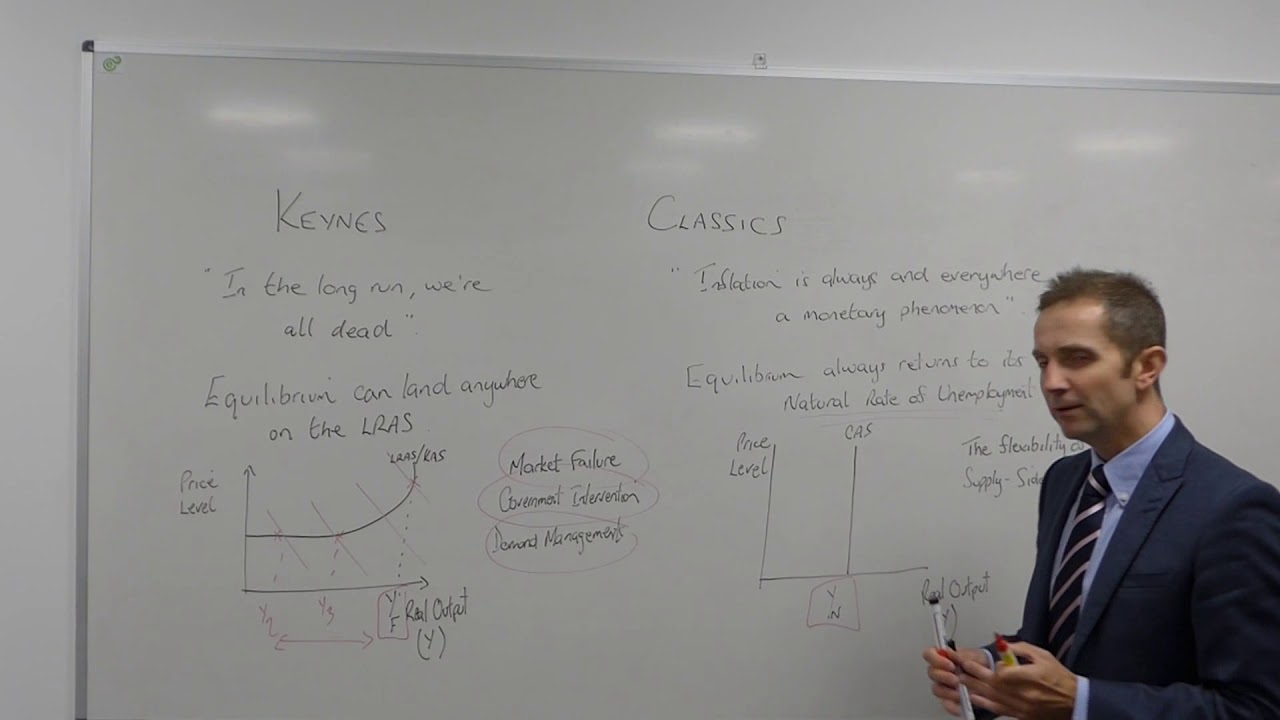 KEYNES
"In the long run, we're
all dead".
Equilibrium can land anywhere
on the LRAS.
LRAS/KAS
Price
Level
Y2
Y3
YF
Real Output
(Y)
Market Failure
Government Intervention
Demand Management
CLASSICS
"Inflation is always and everywhere
a monetary phenomenon".
Equilibrium always returns to its
Natural Rate of Unemployment
CAS
Price
Level
The flexibility
Supply-Side
Y
N
Real Output
Y)